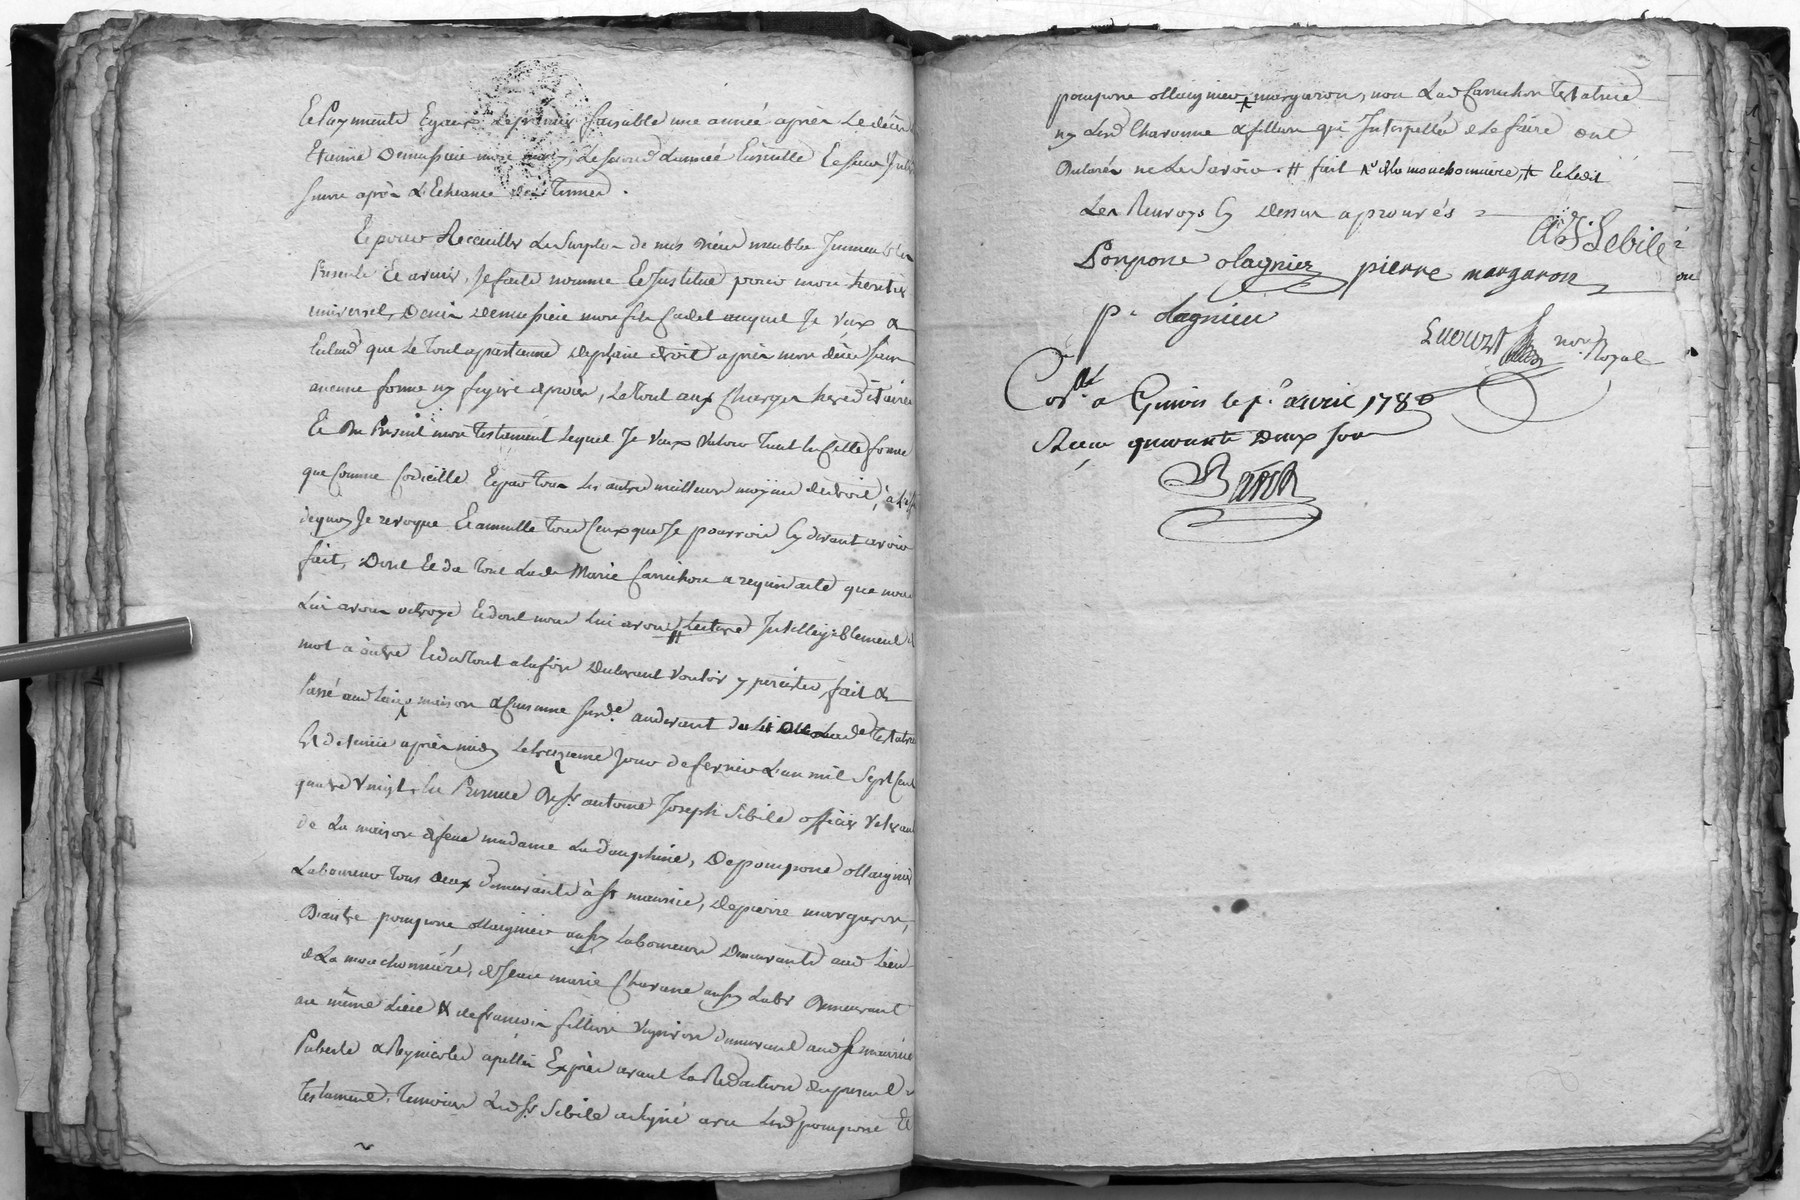 Et Payments Egaux le premier faisable une année après le décès
Etienne Demussieu mon mary, le second l'année Ensuitte
suivre après L'Echeance des Termes.
Et pour Recueillir le surplus de mes biens meubles Immeubles
Presents Et avenir, Je faits nomme Et Institue pour mon heritier
universel, Denis Demussieu mon fils Cadet auquel Je veux &
Entend que le tout apartienne de plaine droit après mon décès sans
aucune forme ny figure de procès, Le tout aux Charges hereditaires
Et Du Present mon Testament lequel Je veux valoir Tant En Cette forme
que Comme Codicille Et par Tous les autres meilleurs moyens de droit,
dequoy Je revoque Et annulle tous Ceux que Je pourrois Cy devant avoir
fait, Dont Et du tout Lade Marie Camichon a requis acte que nous
Lui avons octroyé Et dont nous Lui avons # Lecture Intelligiblement de
mot à autre Et du tout a la fin Declarant vouloir y persister, fait &
Passé aud Lieu + maison & Cuisinne Sur de audevant du Lit de Lade Testatrice
après midy Le treizieme Jour de fevrier L'an mil Sept Cent
quatre vingt, En Presence De Sr antoine Joseph Sibile officier veteran
de La maison de feue madame La Dauphine, De pompone ollaignier
Laboureur tous deux demeurants à St maurice, de pierre margaron,
D'autre pompone ollaignier aussy Laboureurs Demeurants aud Lieu
de La mouchonniere, de Jean marie Charane aussy Labr Demeurant
au même Lieu & de francois fillion Vigneron demeurant aud St maurice
Puberts & Regnicoles apellés Exprès avant La Redaction du present
testament. Temoins Led Sr. Sibile a signé avec Led pompone Et
pompone ollaignier + margaron, non Lad Camichon Testatrice
ny Lesd Charonne & fillion qui Interpellés de Le faire ont
Declarés ne Le Savoir. # fait + de la mouchonniere, + Et Ledit
Les Renvoys Cy dessus aprouvés
A J Sebile
Ponpone olagnier pierre margaron
P. olagnieu
nore. Royal
Con.lé a Givors le 1r. avril 1780
Recu quarante Deux Sous